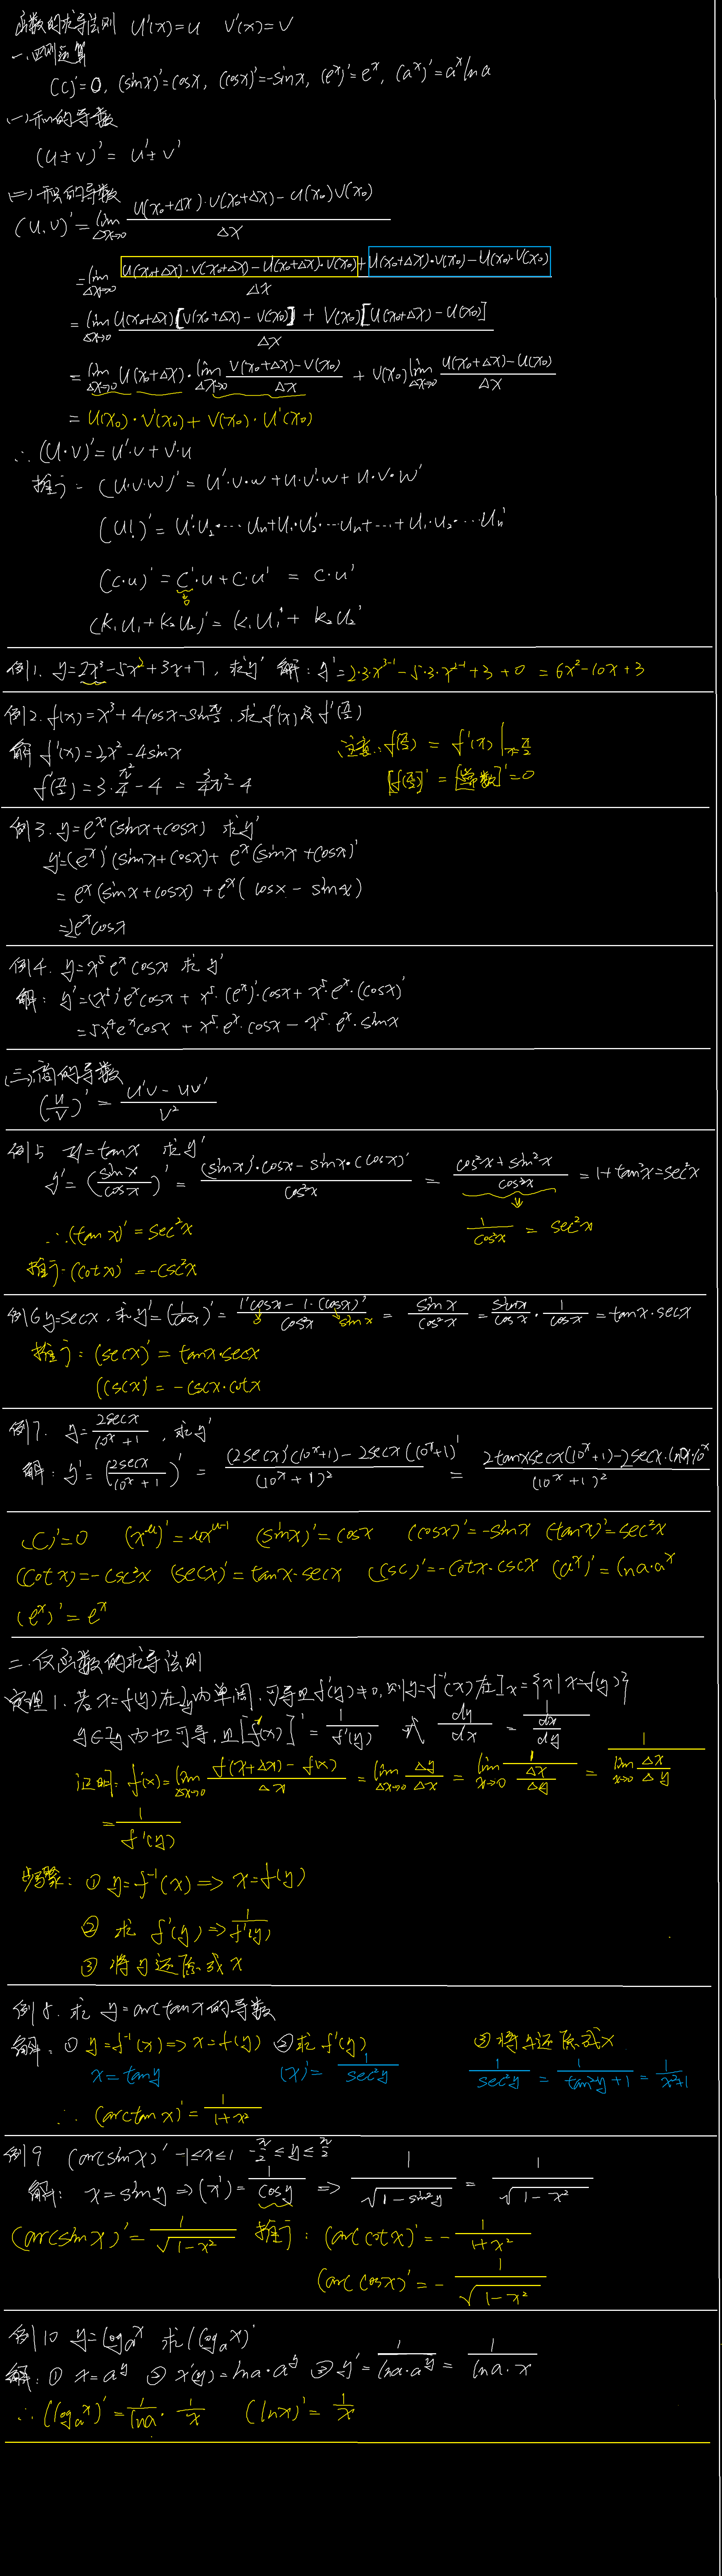 函数的求导法则 U'(x)=u V'(x)=V
一.四则运算
(C)'=0, (sinx)'=cosx, (cosx)'=-sinx, (e^x)'=e^x, (a^x)'=a^x lna
(一)和的导数
(u±v)'= u'±v'
(二)积的导数
(u.v)'=lim Δx→0 [U(x₀+Δx)·V(x₀+Δx)-U(x₀)V(x₀)]/Δx
=lim Δx→0 [U(x₀+Δx)·V(x₀+Δx)-U(x₀+Δx)·V(x₀)+U(x₀+Δx)·V(x₀)-U(x₀)·V(x₀)]/Δx
=lim Δx→0 {U(x₀+Δx)[V(x₀+Δx)-V(x₀)] + V(x₀)[U(x₀+Δx)-U(x₀)]}/Δx
=lim Δx→0 U(x₀+Δx)·lim Δx→0 [V(x₀+Δx)-V(x₀)]/Δx + V(x₀)lim Δx→0 [U(x₀+Δx)-U(x₀)]/Δx
= U(x₀)·V'(x₀)+V(x₀)·U'(x₀)
∴(U·V)'=U'·V+V'·U
推广: (U·V·W)'= U'·V·W+U·V'·W+U·V·W'
(U!)'= U₁'·U₂·…Un+U₁·U₂'·…Un+…+U₁·U₂·…Un'
(C·u)'=C'·u+C·u' = C·u'
(k₁U₁+k₂U₂)'=k₁U₁'+k₂U₂'
例1. y=2x³-5x²+3x+7, 求y' 解: y'=2·3·x^(3-1)-5·3·x^(2-1)+3+0 = 6x²-10x+3
例2. f(x)=x³+4cosx-sin π/2, 求f'(x)及f'(π/2)
解 f'(x)=3x²-4sinx 注意: f'(π/2) = f'(x)|x=π/2
f'(π/2)=3·π²/4-4 = 3/4π²-4 [f(π/2)]'=[常数]'=0
例3. y=e^x(sinx+cosx) 求y'
y'=(e^x)'(sinx+cosx)+e^x(sinx+cosx)'
=e^x(sinx+cosx)+e^x(cosx-sinx)
=2e^x cosx
例4. y=x⁵e^x cosx 求y'
解: y'=(x⁵)'e^x cosx+x⁵·(e^x)'·cosx+x⁵·e^x·(cosx)'
=5x⁴e^x cosx + x⁵·e^x·cosx - x⁵·e^x·sinx
(三)商的导数
(u/v)' = (u'v-uv')/v²
例5 y=tanx 求y'
y'=(sinx/cosx)' = [(sinx)'·cosx-sinx·(cosx)']/cos²x = (cos²x+sin²x)/cos²x = 1+tan²x=sec²x
∴(tanx)'=sec²x 1/cos²x = sec²x
推广·(cotx)'=-csc²x
例6 y=secx, 求y'=(1/cosx)'=[1'cosx-1·(cosx)']/cos²x = sinx/cos²x = sinx/cosx · 1/cosx = tanx·secx
0 -sinx
推广: (secx)'=tanx·secx
(cscx)'=-cscx·cotx
例7. y=2secx/(10^x+1), 求y'
解: y'=(2secx/(10^x+1))' = [(2secx)'(10^x+1)-2secx(10^x+1)']/(10^x+1)² = [2tanxsecx(10^x+1)-2secx·ln10·10^x]/(10^x+1)²
(C)'=0 (x^u)'=ux^(u-1) (sinx)'=cosx (cosx)'=-sinx (tanx)'=sec²x
(cotx)=-csc²x (secx)'=tanx·secx (csc)'=-cotx·cscx (a^x)'=lna·a^x
(e^x)'=e^x
二.反函数的求导法则
定理1. 若x=f(y)在Iy内单调,可导且f'(y)≠0,则y=f⁻¹(x)在Ix={x|x=f(y)
y∈Iy}内也可导,且[f⁻¹(x)]'=1/f'(y) 或 dy/dx = 1/(dx/dy)
证明: f'(x)=lim Δx→0 [f(x+Δx)-f(x)]/Δx = lim Δx→0 Δy/Δx = lim x→0 1/(Δx/Δy) = 1/(lim x→0 Δx/Δy)
= 1/f'(y)
步骤: ① y=f⁻¹(x)=>x=f(y)
② 求 f'(y)=>1/f'(y)
③ 将y还原成x
例8. 求 y=arctanx的导数
解: ① y=f⁻¹(x)=>x=f(y) ②求f'(y) ③将y还原成x
x=tany (x)'=1/sec²y 1/sec²y = 1/(tan²y+1) = 1/(x²+1)
∴ (arctanx)'=1/(1+x²)
例9 (arcsinx)' -1≤x≤1 -π/2≤y≤π/2
解: x=siny=>(x')=1/cosy => 1/√(1-sin²y) = 1/√(1-x²)
(arcsinx)'=1/√(1-x²) 推广: (arccotx)'=-1/(1+x²)
(arccosx)'=-1/√(1-x²)
例10 y=logₐx 求(logₐx)'
解: ① x=a^y ② x'(y)=lna·a^y ③ y'=1/(lna·a^y)=1/(lna·x)
∴(logₐx)'=1/lna·1/x (lnx)'=1/x